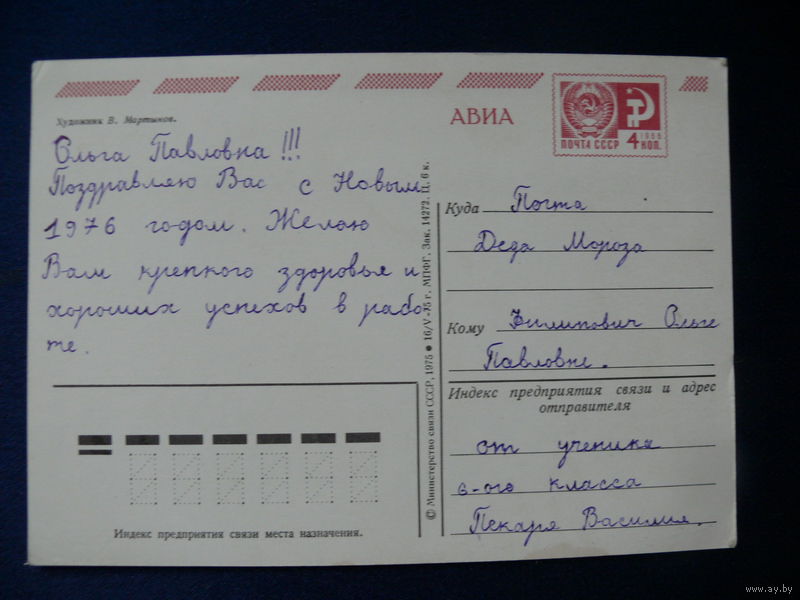 Художник В. Мартынов.
Ольга Павловна!!!
Поздравляю Вас с Новым
1976 годом. Желаю
Вам крепкого здоровья и
хороших успехов в рабо-
те.
Индекс предприятия связи места назначения.
© Министерство связи СССР, 1975 ● 16/V-75 г. МПФГ. Зак. 14272. Ц. 6 к.
АВИА
ПОЧТА СССР
1966
4 КОП.
Куда Почта
Деда Мороза
Кому Филипович Ольге
Павловне.
Индекс предприятия связи и адрес
отправителя
от ученика
6-ого класса
Пекаря Василия.
www.ay.by